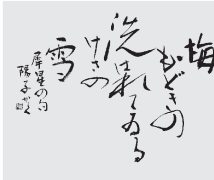 梅
もどきの
洗はれてゐる
けさの
雪
犀星の句